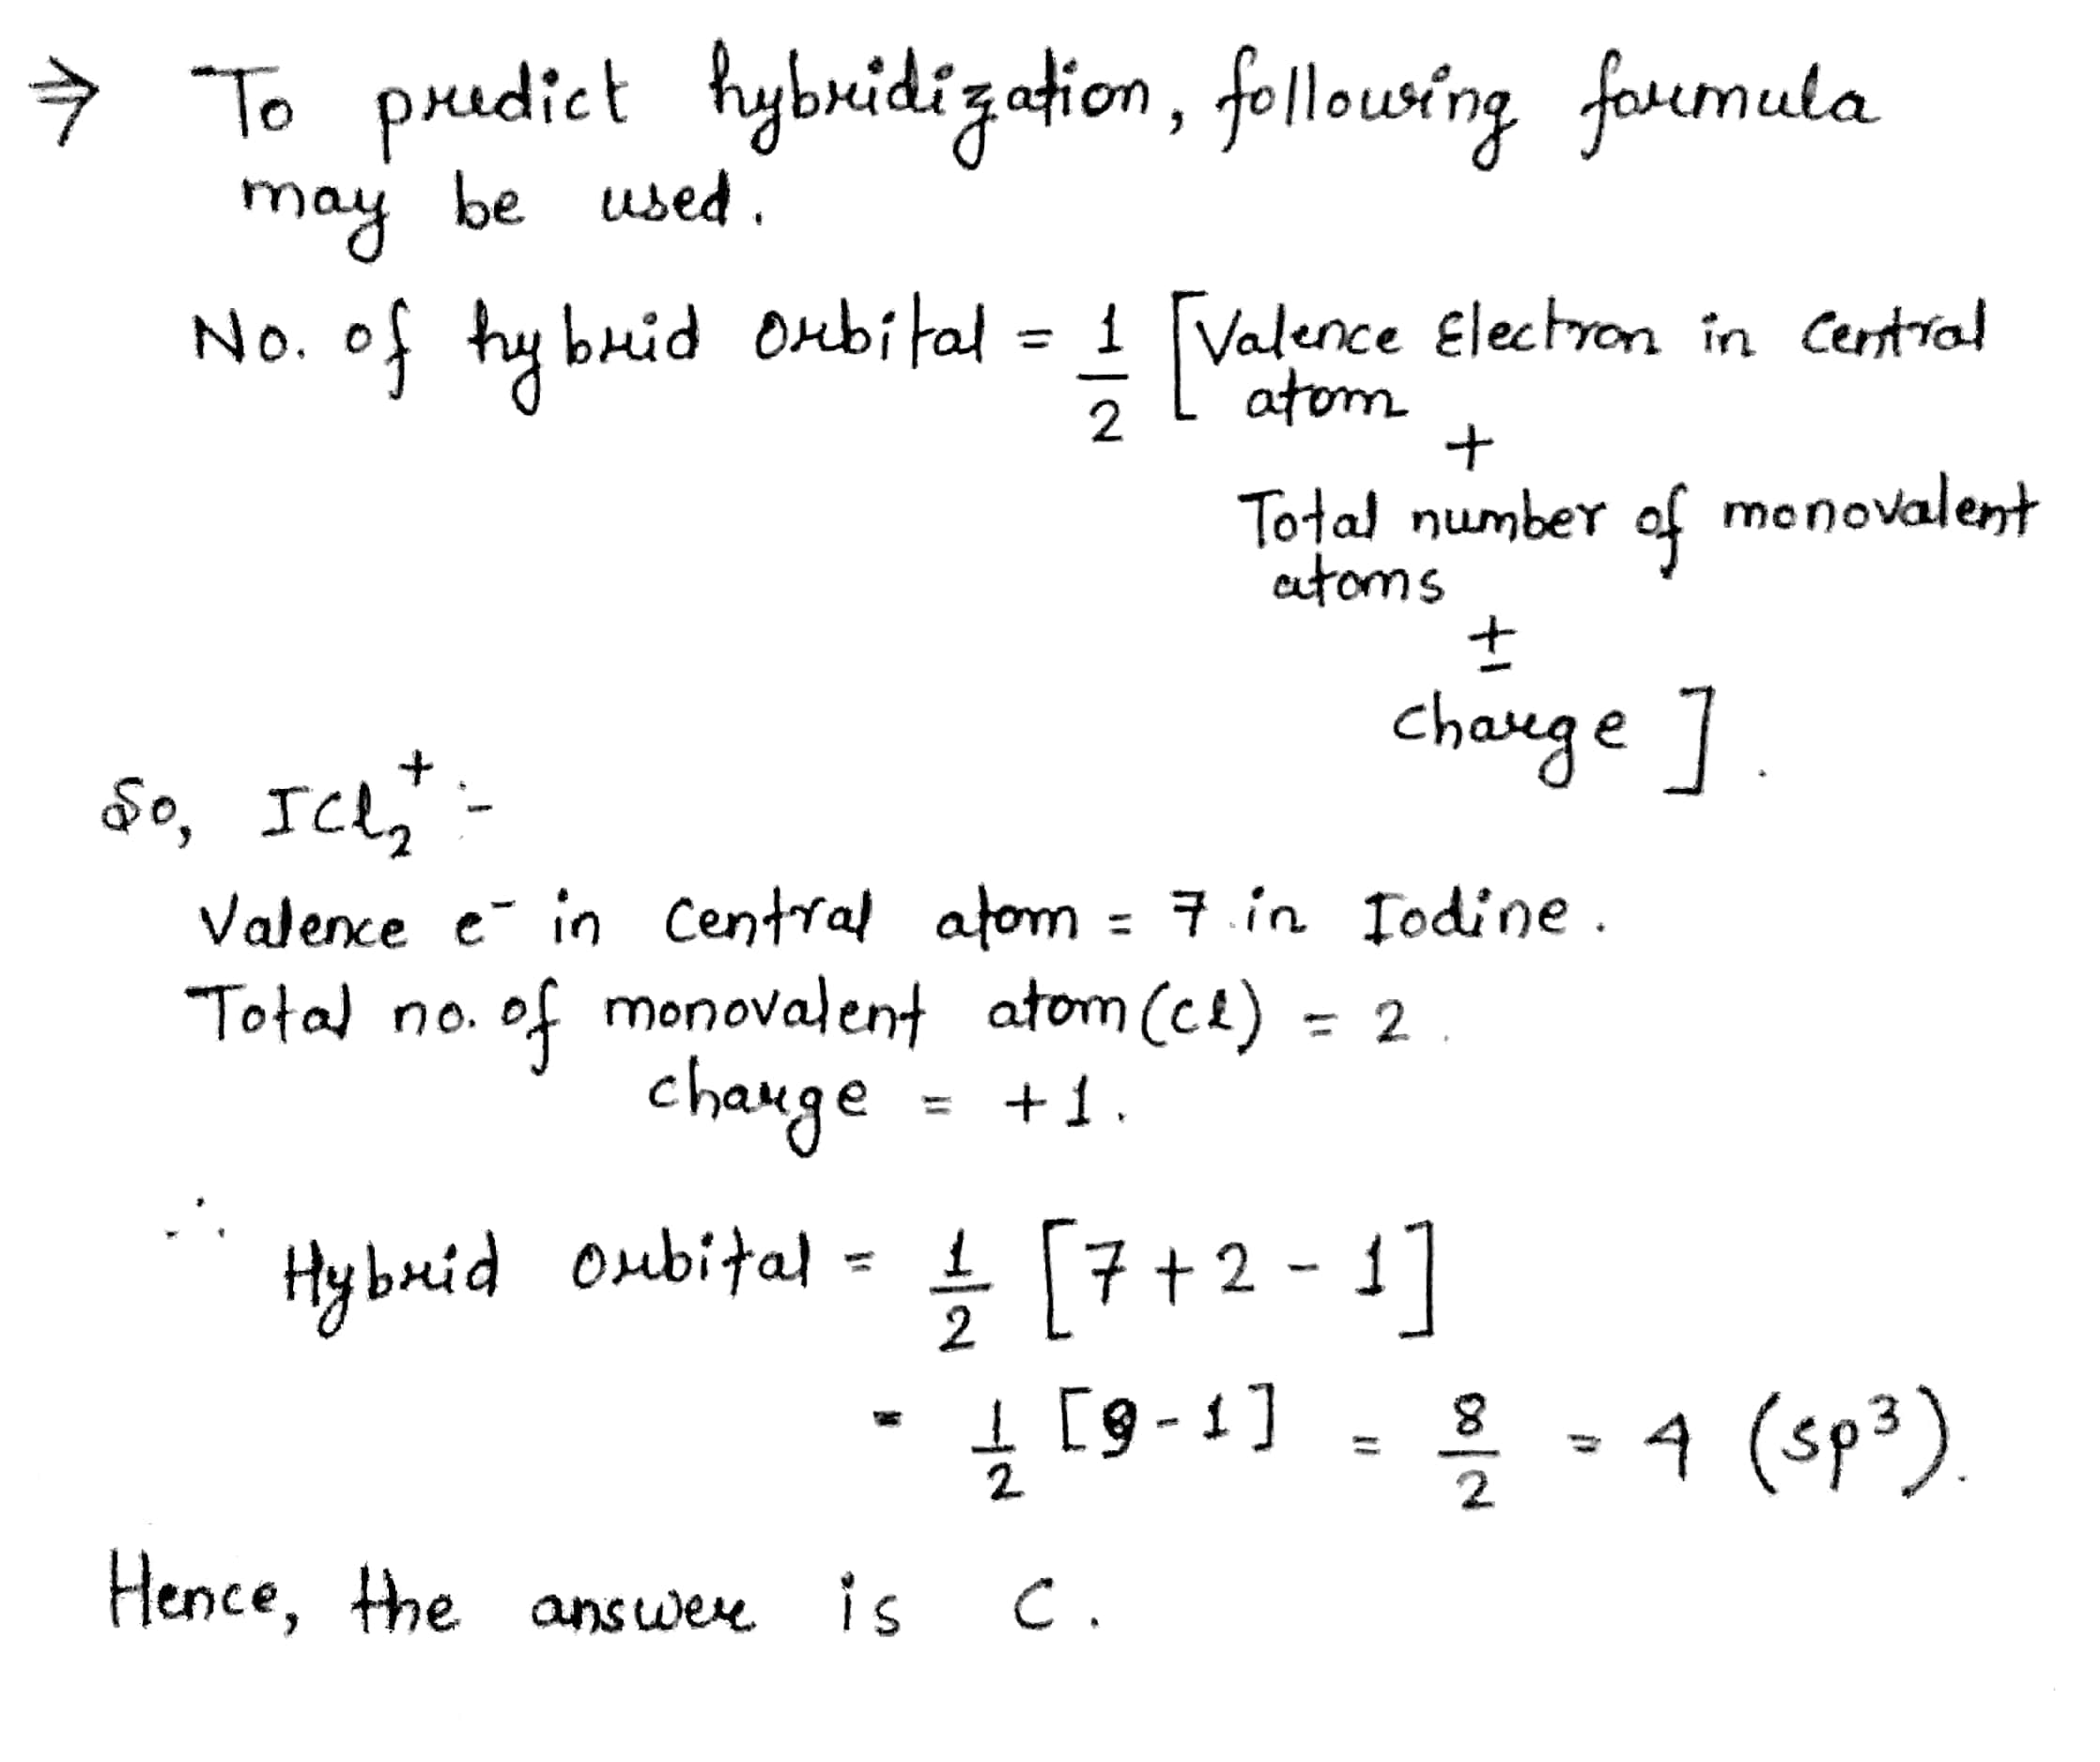 ⇒ To predict hybridization, following formula
may be used.
No. of hybrid orbital = 1/2 [Valence Electron in Central
atom
+
Total number of monovalent
atoms
±
charge].
So, ICl₂⁺ :-
Valence e⁻ in Central atom = 7 in Iodine.
Total no. of monovalent atom (Cl) = 2.
charge = +1.
∴ Hybrid orbital = 1/2 [7+2-1]
= 1/2 [9-1] = 8/2 = 4 (sp³).
Hence, the answer is C.